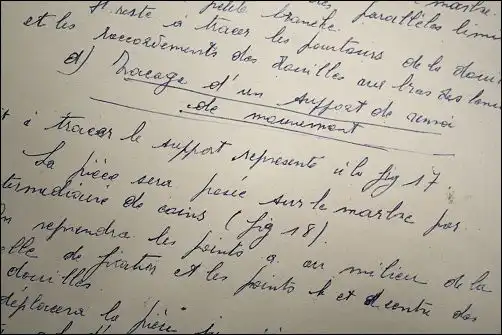 parallèles
petite branche.
Il reste à tracer les pourtours de la
et les raccordements des douilles aux bras des
d) Traçage d'un support de renvoi
de mouvement
à tracer le support représenté à la fig 17.
La pièce sera posée sur le marbre par
termédiaire de coins (fig 18).
reprendra les points a au milieu de la
de fixation et les points b et d centre des
douilles.
déplacera la pièce